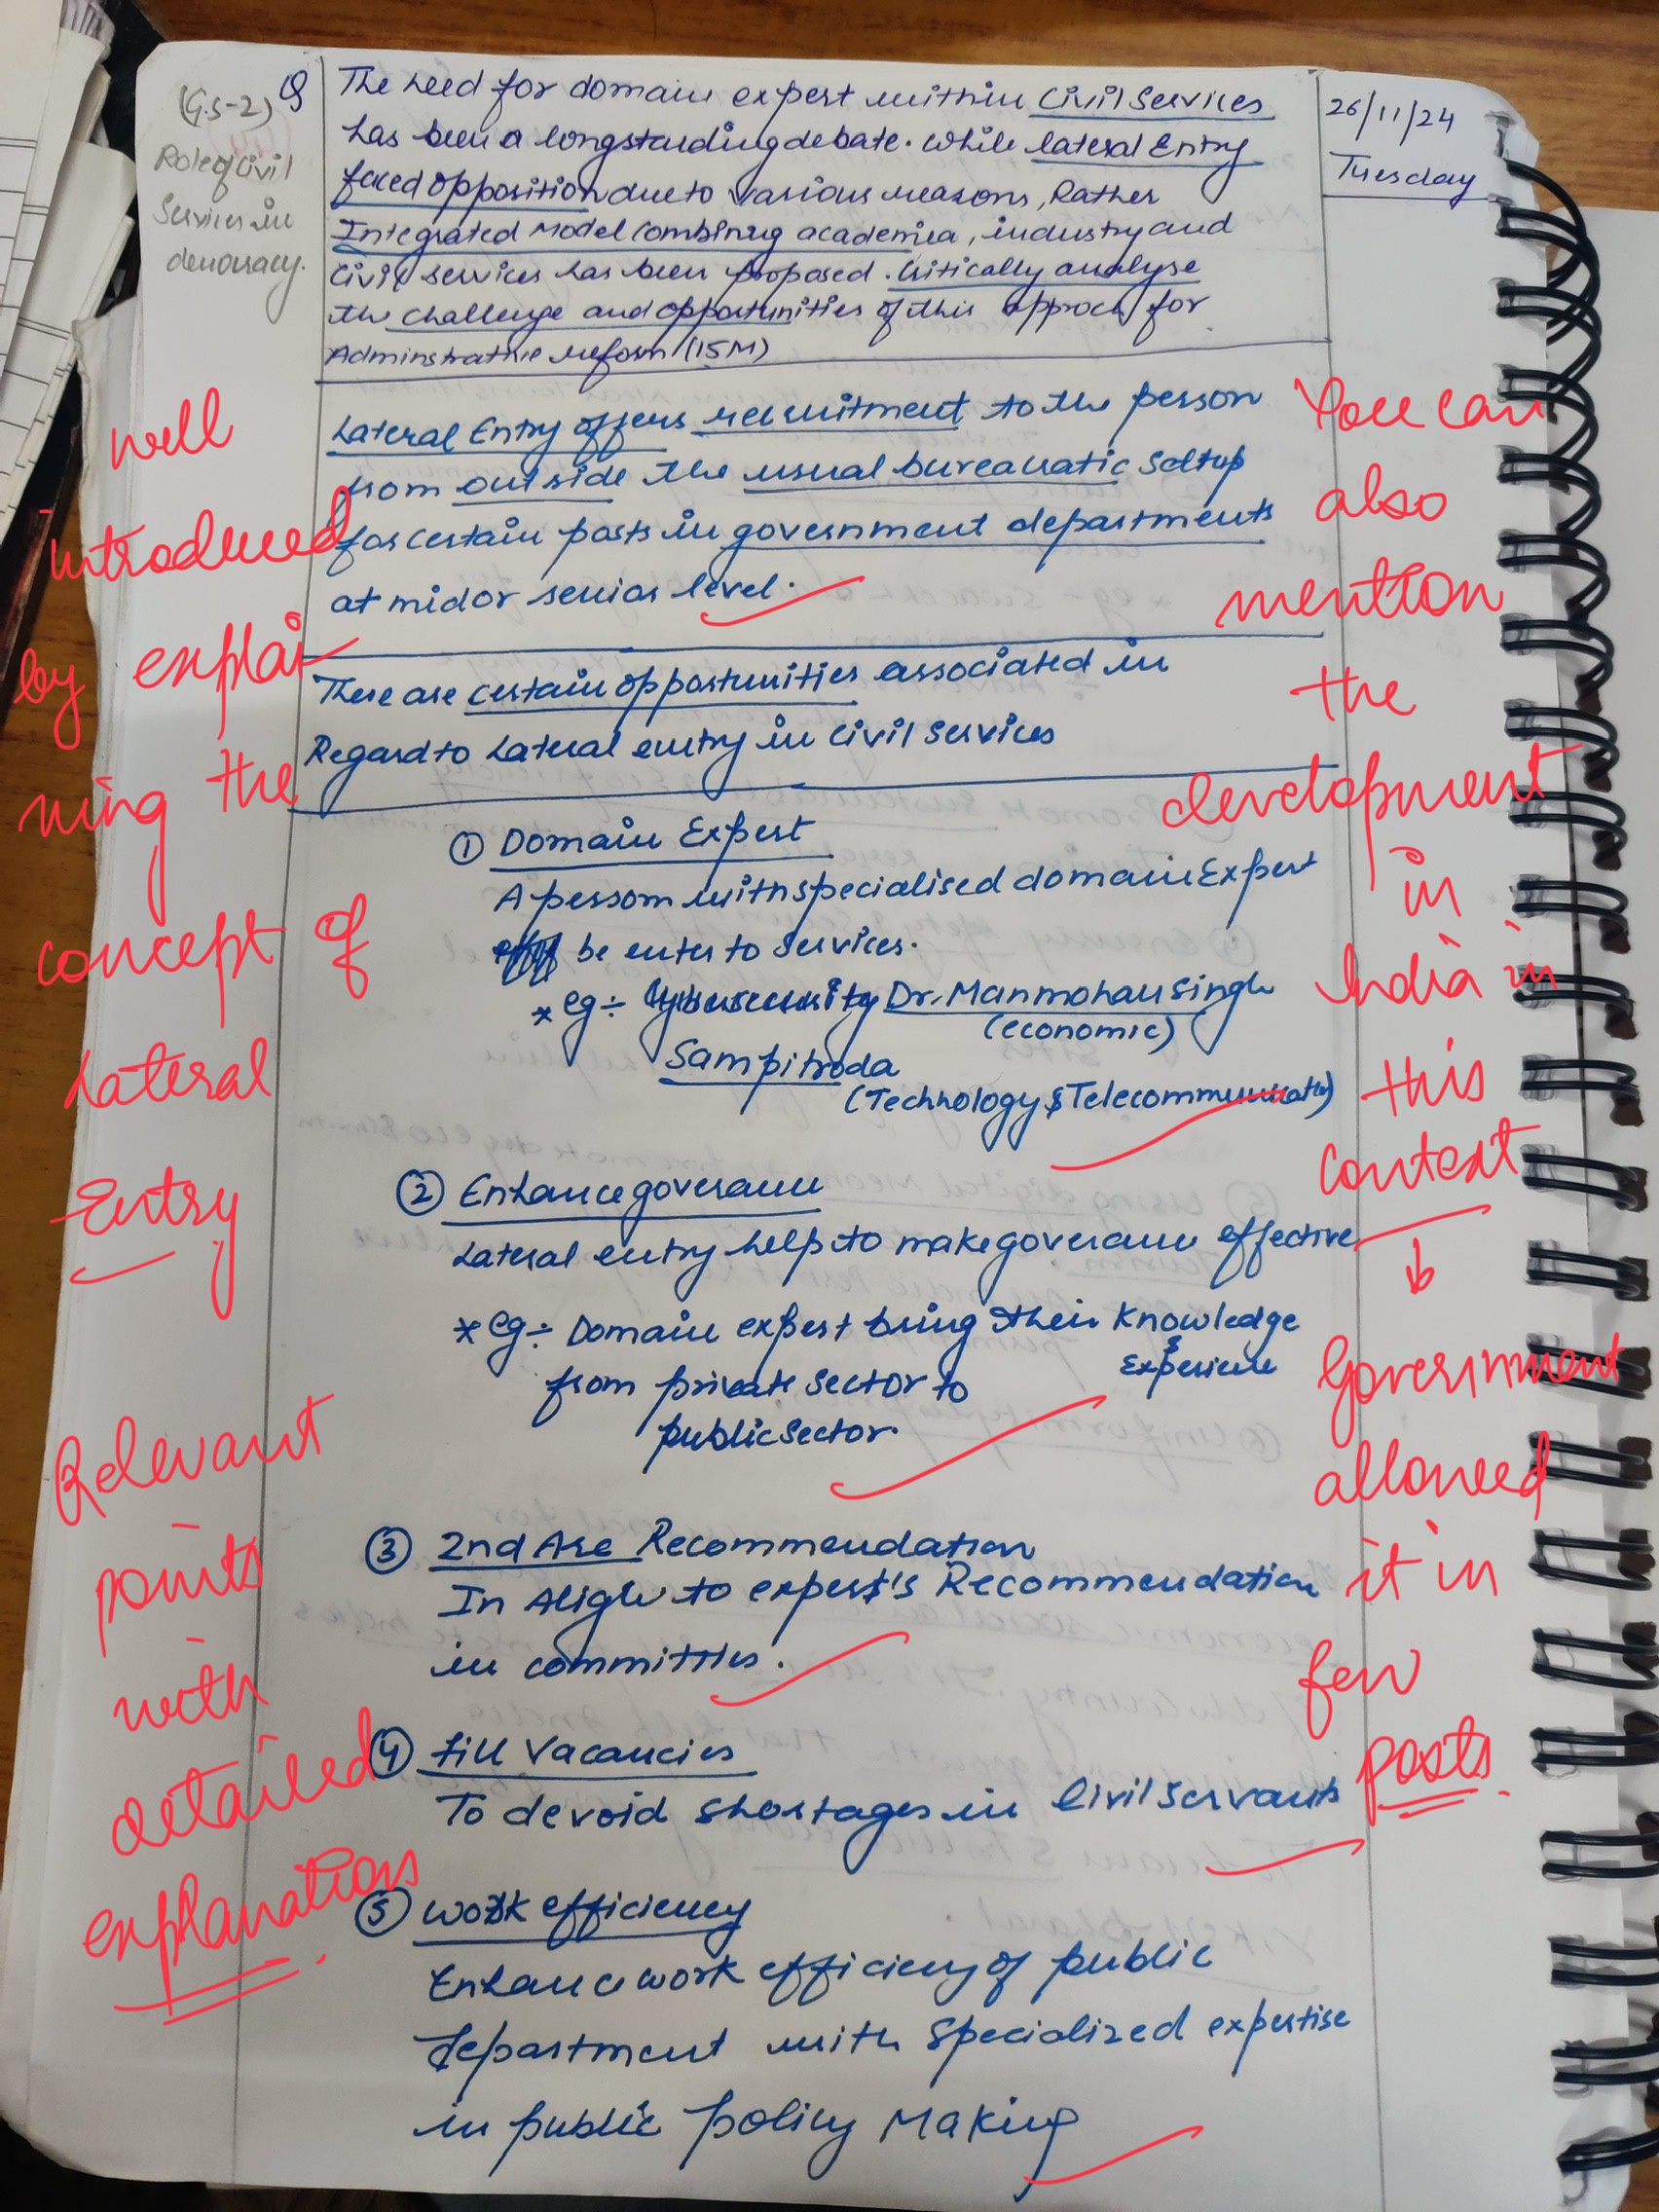 (G.S-2)
Role of Civil
Services in
democracy.
Q
The need for domain expert within Civil Services
has been a longstanding debate. While lateral Entry
faced opposition due to various reasons, Rather
Integrated Model combining academia, industry and
Civil services has been proposed. Critically analyse
the challenge and opportunities of this approch for
Adminstrative reform (15M)
26/11/24
Tuesday
Lateral Entry offers recruitment to the person
from outside the usual bureauatic Settup
for certain posts in government departments
at mid or senior level.
There are certain opportunities associated in
Regard to Lateral entry in Civil Services
① Domain Expert
A persom with specialised domain Expert
be enter to services.
* eg ÷ Dr. Manmohan Singh
(economic)
Sampitroda
(Technology &
② Enhance goverance
Lateral entry help to make goverance effective
* eg ÷ Domain expert bring their Knowledge
& Experience
from private Sector to
public Sector.
③ 2nd Arc Recommendation
In Aligh to expert's Recommendation
in committies.
④ Fill Vacancies
To devoid shortages in Civil Servants
⑤ Work efficiency
Enhance work efficiency of public
department with Specialized expertise
in public policy Making
well
introduced
by explai-
ning the
concept of
Lateral
Entry
Relevant
points
with
detailed
explanations.
You can
also
mention
the
development
in
India in
this
context
↓
Government
allowed
it in
few
posts.